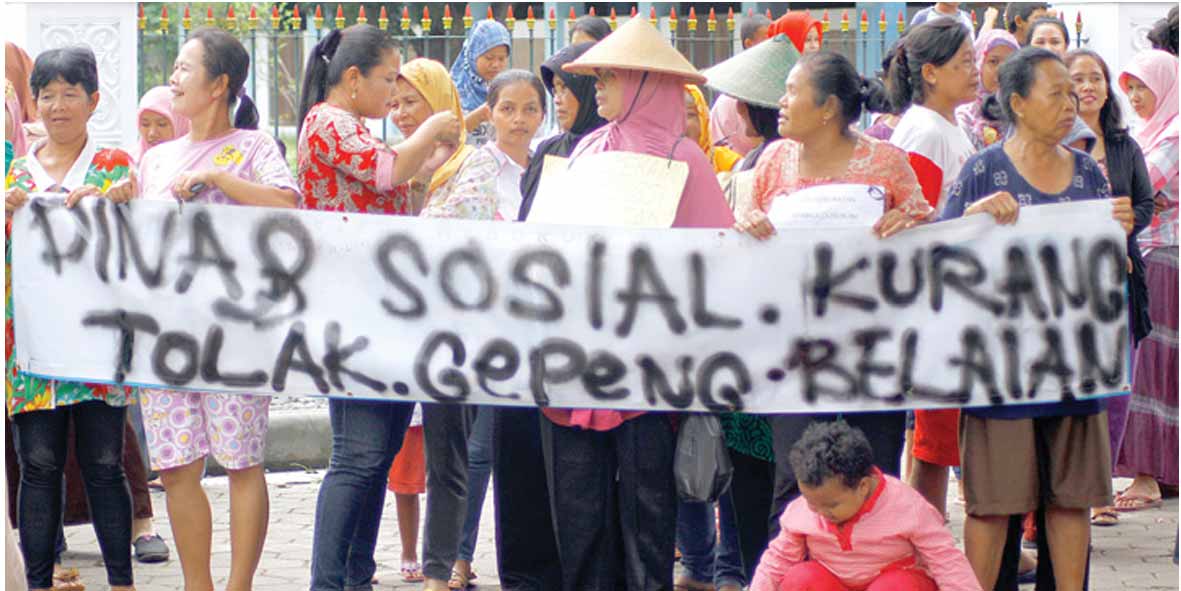 DINAS SOSIAL. KURANG
TOLAK. GEPENG. BELAIAN